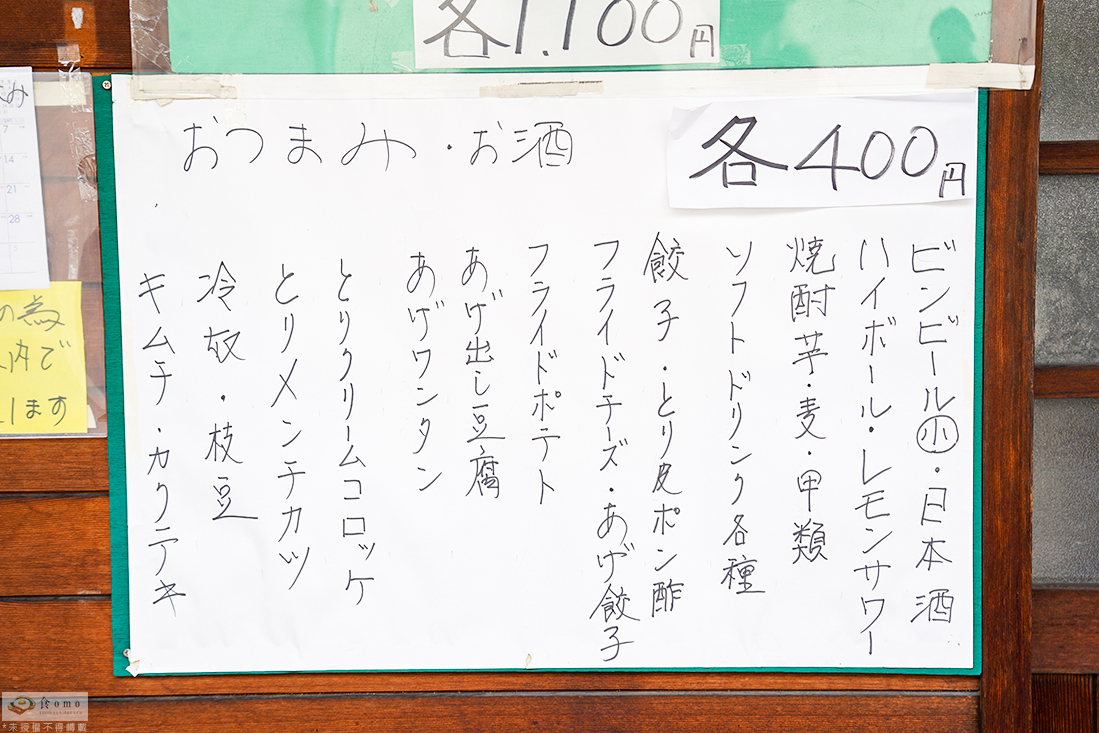 各1.100円
おつまみ・お酒
各400円
ビンビール小・日本酒
ハイボール・レモンサワー
焼酎芋・麦・甲類
ソフトドリンク各種
餃子・とり皮ポン酢
フライドチーズ・あげ餃子
フライドポテト
あげ出し豆腐
あげワンタン
とりクリームコロッケ
とりメンチカツ
冷奴・枝豆
キムチ・カクテキ
み
7
14
21
28
の為
内で
します
食omo
*未授權不得轉載